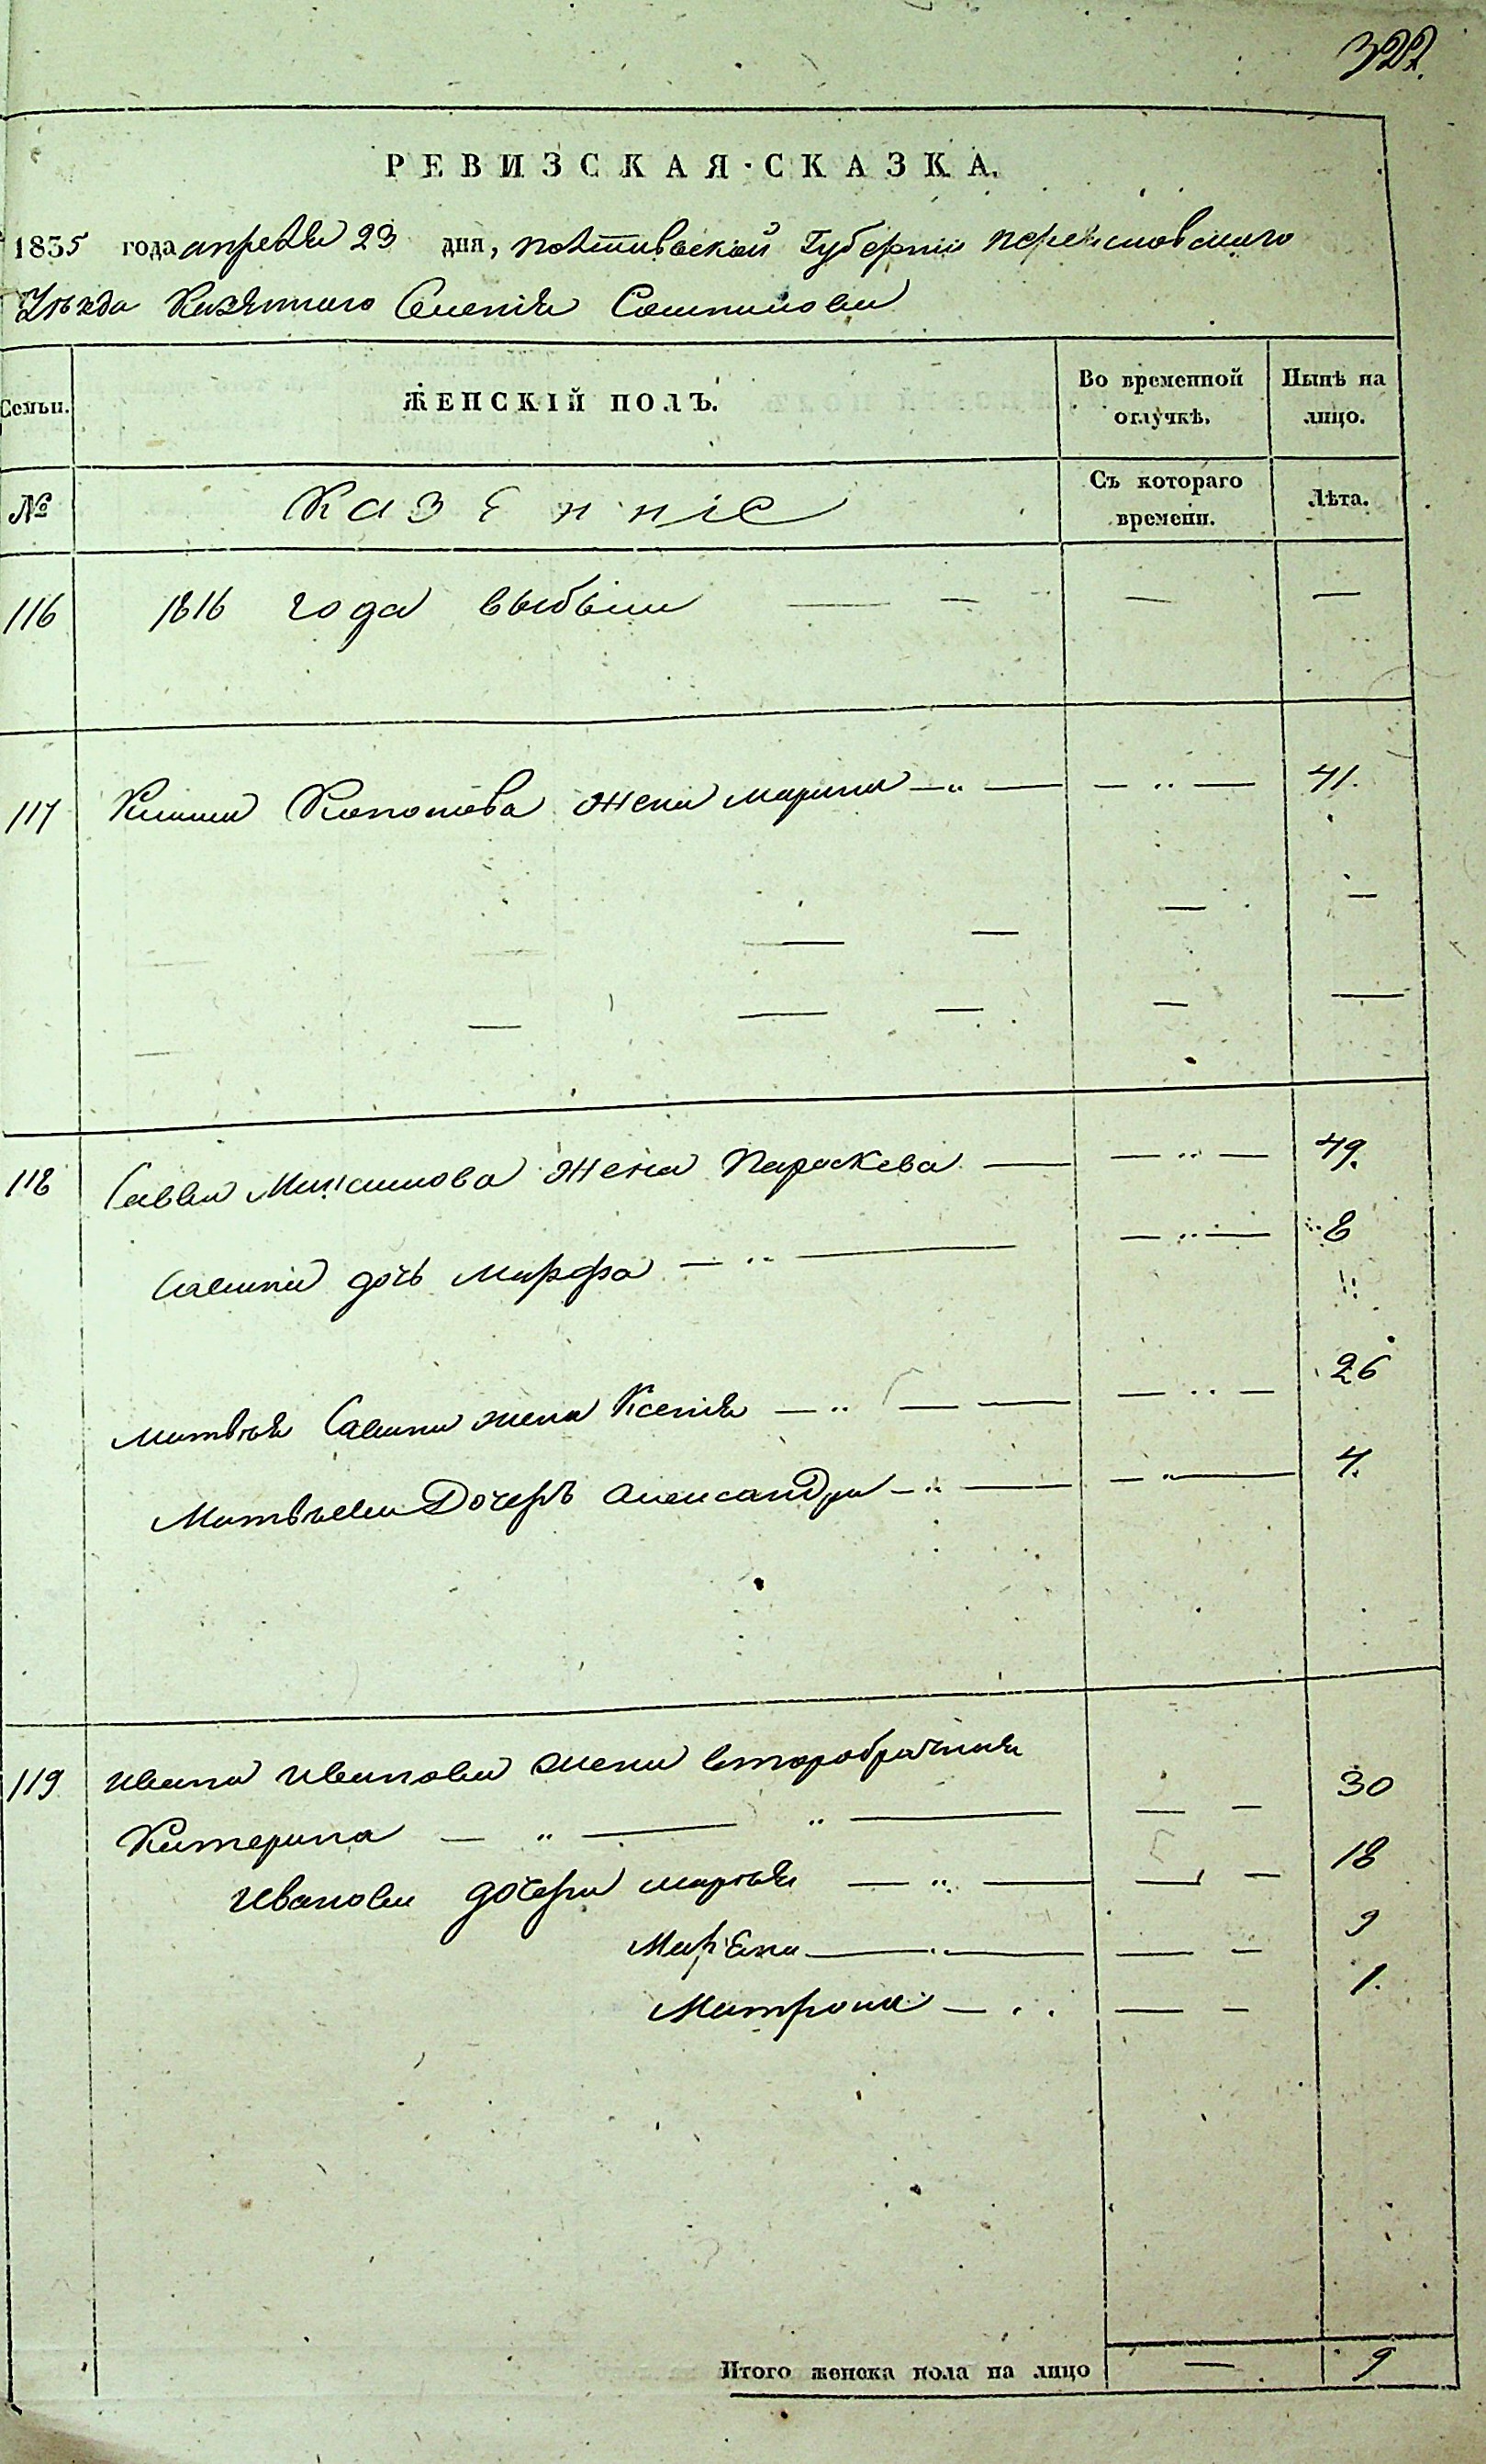 322.
РЕВИЗСКАЯ·СКАЗКА.
1835 года апреля 23 дня, полтавской Губернии переясловского
Уѣзда Казенного Селенія
Семьи. ЖЕНСКІЙ ПОЛЪ. Во временной отлучкѣ. Нынѣ на лицо.
№ Казеnніе Съ котораго времени. Лѣта.
116 1816 года выбыли — — — —
117 Клима Кононова жена марина — „ — — „ — 41.
— — — —
— — — — — —
118 Саввы Максимова жена Параскева — — „ — 49.
Савина дочь Марфа — „ — — „ — 8
матвѣя Савина жена Ксенія — „ — — — „ — 26
Матвѣева Дочерь александра — „ — — „ — 4.
119 ивана иванова жена второбрачная
Катерина — „ — „ — — — 30
Иванова дочери марья — „ — — — 18
Марѣна — „ — — — 9
Матрона — „ — — 1.
Итого женска пола на лицо — 9